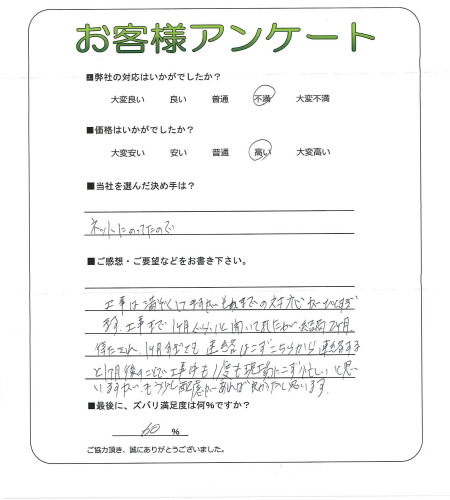 お客様アンケート
■弊社の対応はいかがでしたか?
大変良い 良い 普通 不満 大変不満
■価格はいかがでしたか?
大変安い 安い 普通 高い 大変高い
■当社を選んだ決め手は?
ネットにのってたので
■ご感想・ご要望などをお書き下さい。
工事は それまでの対応が
工事まで1ヶ月くらいと聞いてれたが 結局2ヶ月
待たされ、1ヶ月すぎても連絡はこずこちらから連絡する
と1ヶ月後とのことで工事中も1度も現場にこず忙しいと思
いますがもう少し配慮があれば良かったと思います。
■最後に、ズバリ満足度は何%ですか?
60 %
ご協力頂き、誠にありがとうございました。